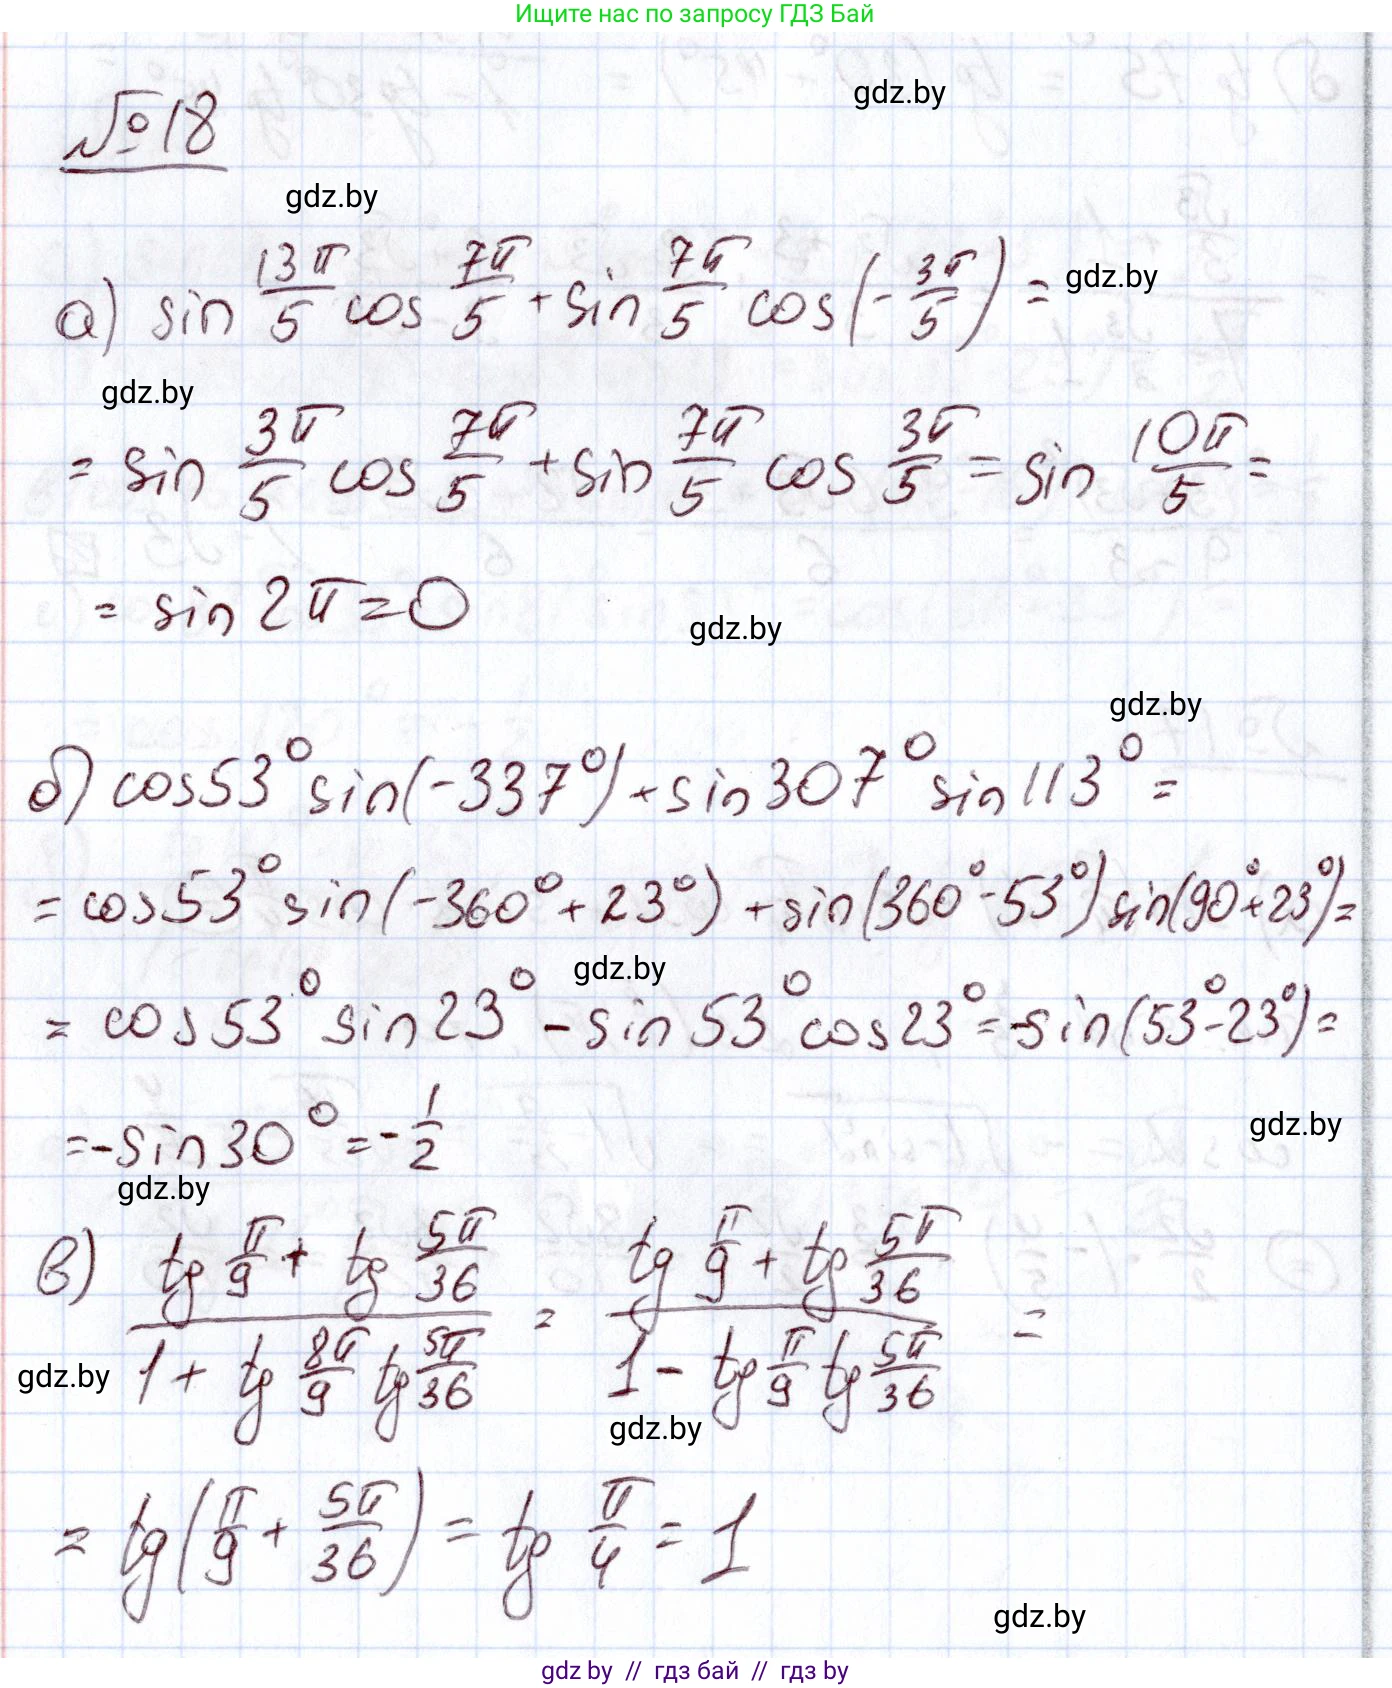 Ищите нас по запросу ГДЗ Бай
gdz.by
№18
gdz.by
а) sin 13π/5 cos 7π/5 + sin 7π/5 cos(-3π/5) =
gdz.by
gdz.by
= sin 3π/5 cos 7π/5 + sin 7π/5 cos 3π/5 = sin 10π/5 =
= sin 2π = 0
gdz.by
gdz.by
б) cos53° sin(-337°) + sin307° sin113° =
= cos53° sin(-360° + 23°) + sin(360° - 53°) sin(90° + 23°) =
gdz.by
= cos53° sin23° - sin53° cos23° = -sin(53° - 23°) =
= -sin30° = -1/2
gdz.by
gdz.by
в) (tg π/9 + tg 5π/36)/(1 + tg 8π/9 tg 5π/36) = (tg π/9 + tg 5π/36)/(1 - tg π/9 tg 5π/36) =
gdz.by
gdz.by
= tg(π/9 + 5π/36) = tg π/4 = 1
gdz.by
gdz by // гдз бай // гдз by